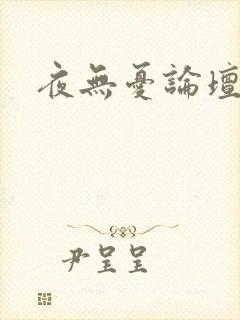 夜無憂論壇
尹呈呈